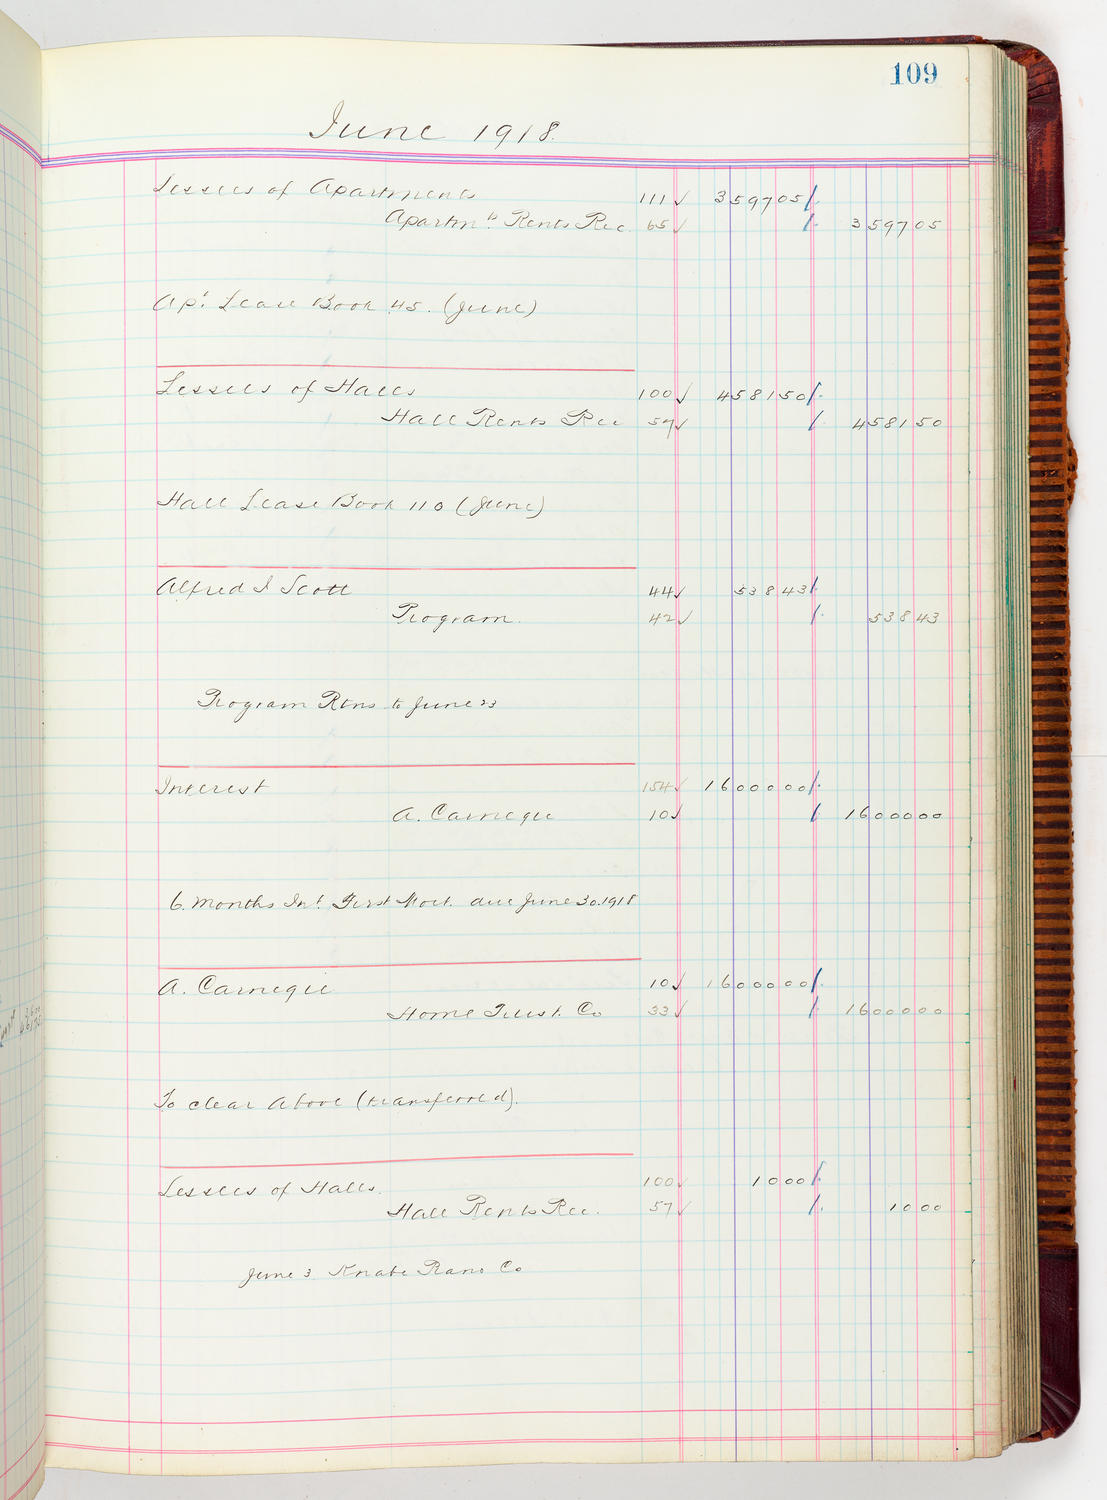 109
June 1918.
Lessees of Apartments 111 ✓ 359705
Apartmts. Rents Rec. 65 ✓ 359705
Apt. Lease Book 45. (June)
Lessees of Halls 100 ✓ 458150
Hall Rents Rec 57 ✓ 458150
Hall Lease Book 110 (June)
Alfred I Scott 44 ✓ 53843
Program. 42 ✓ 53843
Program Rtns to June 23
Interest 154 ✓ 1600000
A. Carnegie 10 ✓ 1600000
6 Months Int. First Mort. due June 30.1918
A. Carnegie 10 ✓ 1600000
Home Trust Co 33 ✓ 1600000
To clear Above (transferred).
Lessees of Halls. 100 ✓ 1000
Hall Rents Rec. 57 ✓ 1000
June 3 Knabe Piano Co